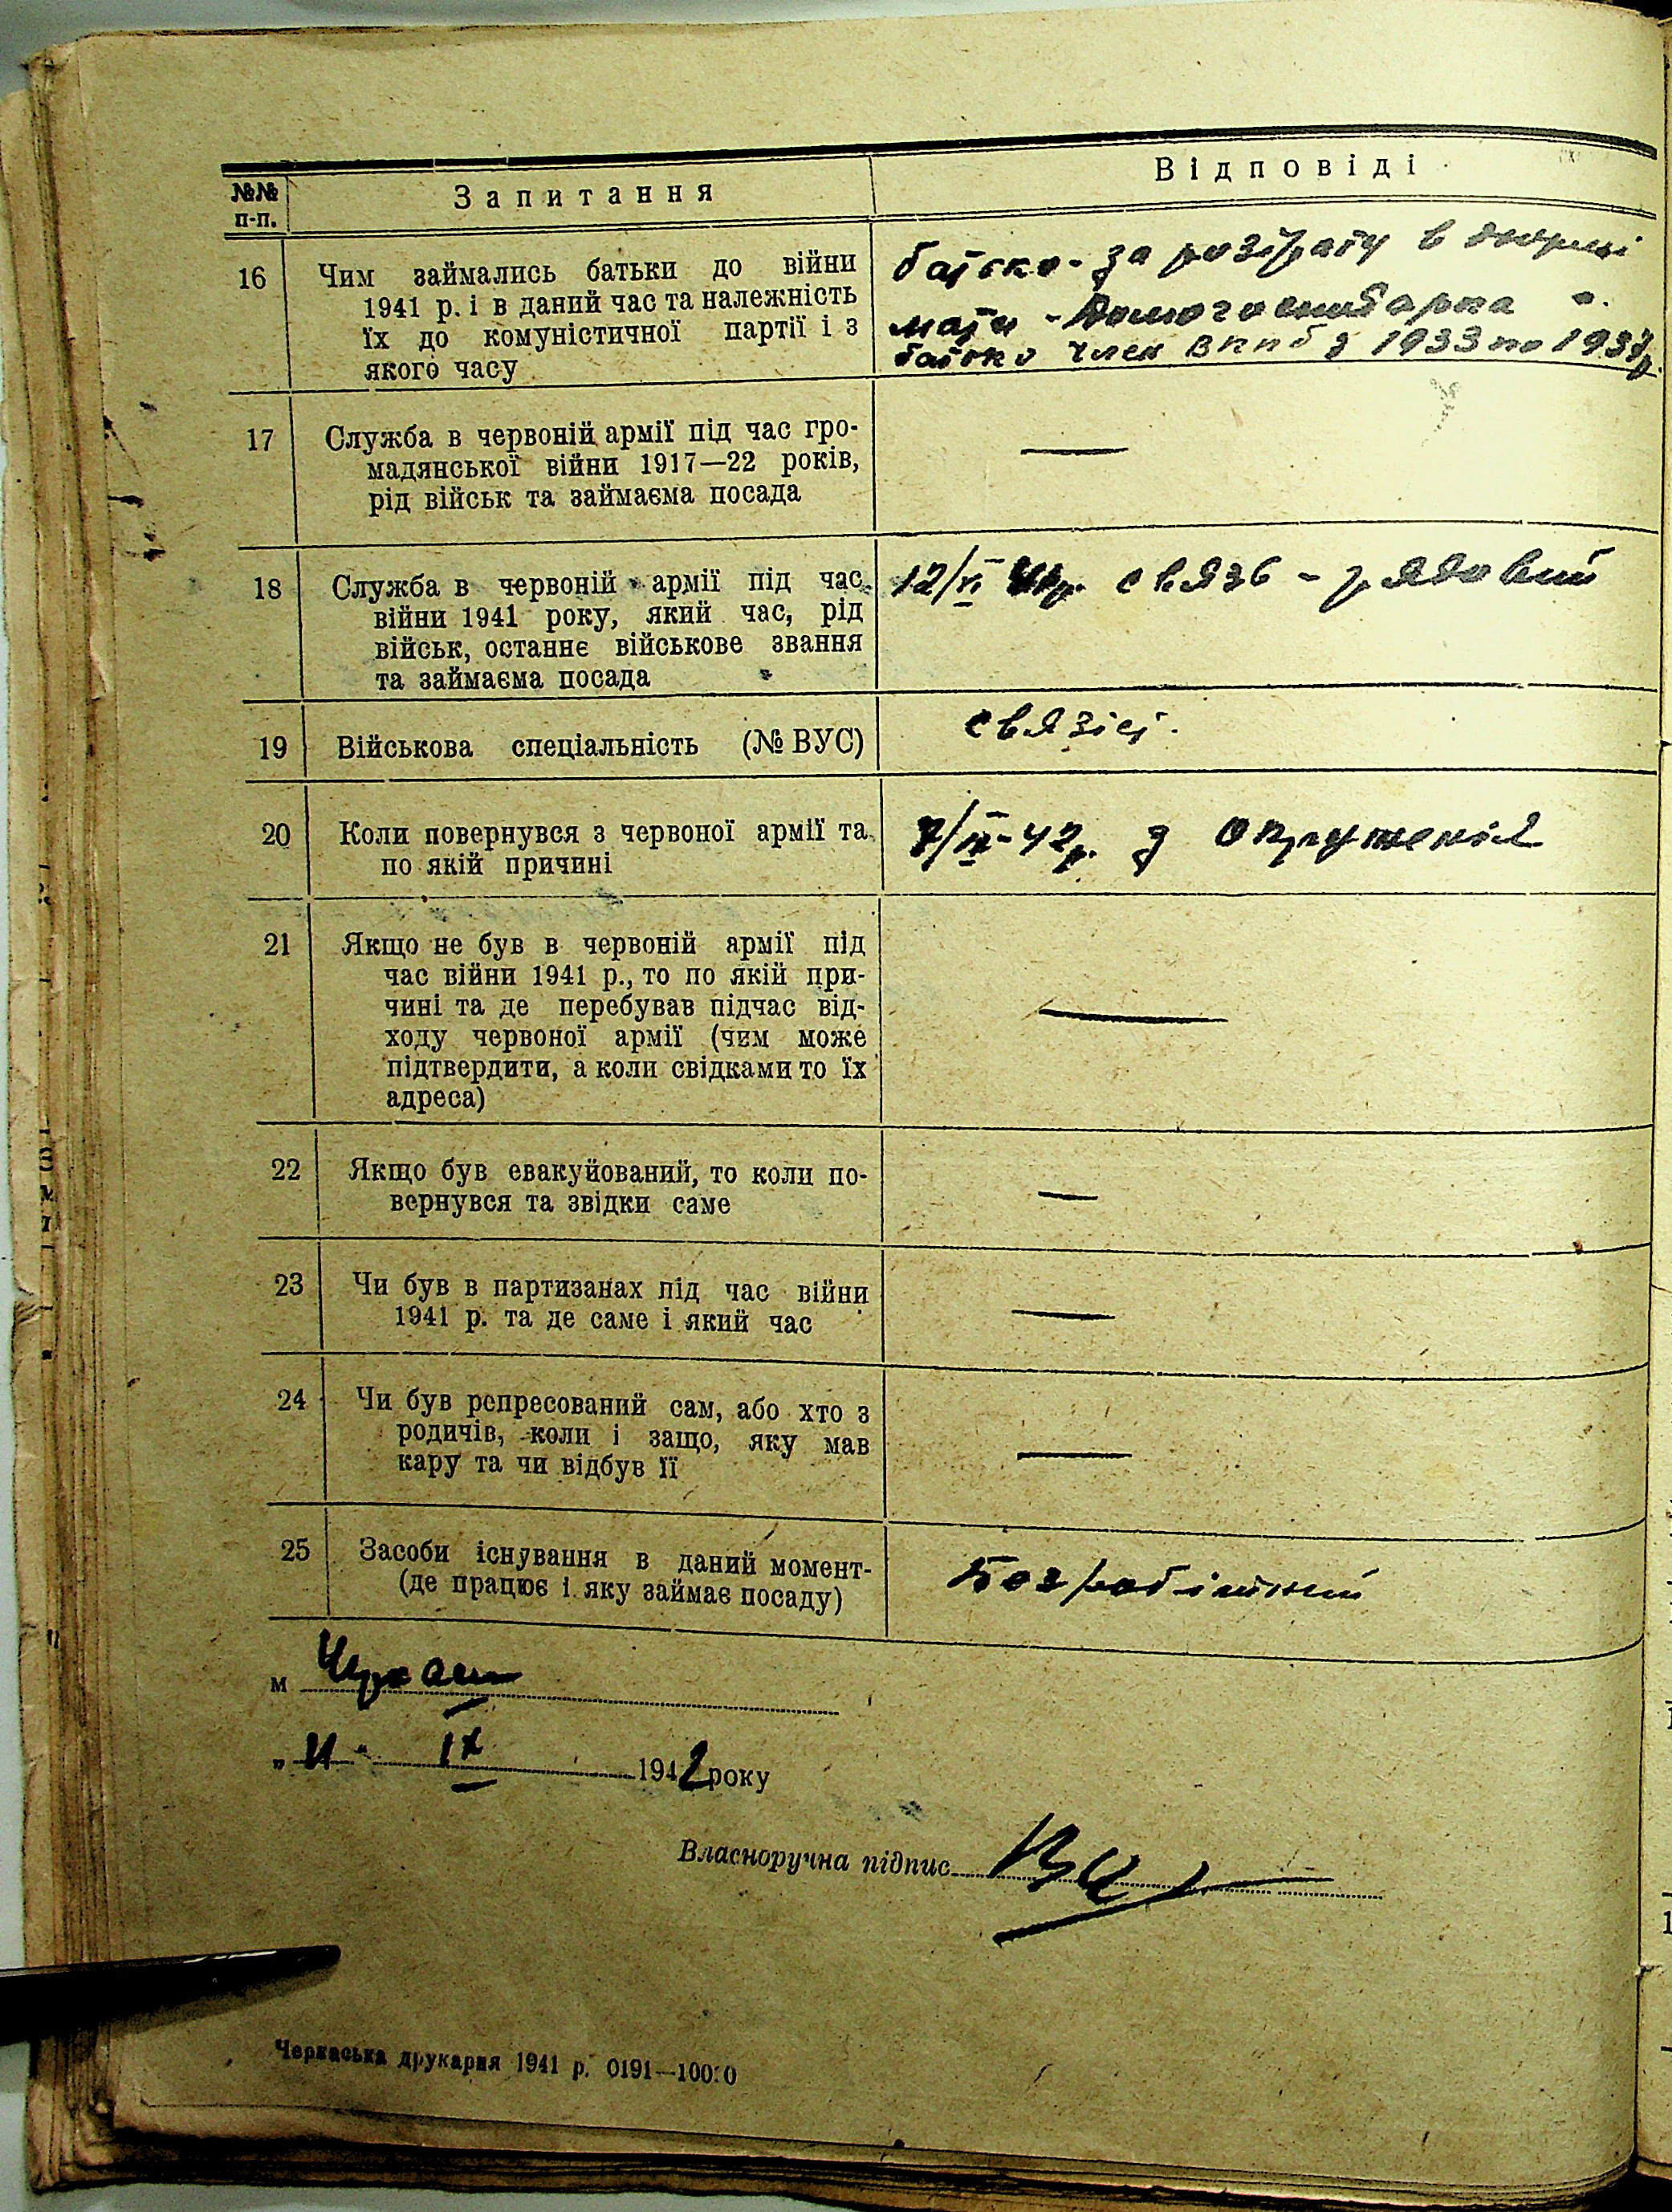 №№ п-п.
Запитання
Відповіді
16
Чим займались батьки до війни
1941 р. і в даний час та належність
їх до комуністичної партії і з
якого часу
батько - за розтрату в
мати - домогосподарка
батько член ВКПб з 1933 по
17
Служба в червоній армії під час гро-
мадянської війни 1917—22 років,
рід військ та займаєма посада
—
18
Служба в червоній армії під час
війни 1941 року, який час, рід
військ, останнє військове звання
та займаєма посада
связь - рядовий
19
Військова спеціальність (№ ВУС)
связіст.
20
Коли повернувся з червоної армії та
по якій причині
42р. з окруженія
21
Якщо не був в червоній армії під
час війни 1941 р., то по якій при-
чині та де перебував підчас від-
ходу червоної армії (чим може
підтвердити, а коли свідками то їх
адреса)
—
22
Якщо був евакуйований, то коли по-
вернувся та звідки саме
—
23
Чи був в партизанах під час війни
1941 р. та де саме і який час
—
24
Чи був репресований сам, або хто з
родичів, коли і защо, яку мав
кару та чи відбув її
—
25
Засоби існування в даний момент-
(де працює і яку займає посаду)
Безробітний
м Черкаси
„11" IX 1942 року
Власноручна підпис
Черкаська друкарня 1941 р. 0191—10000